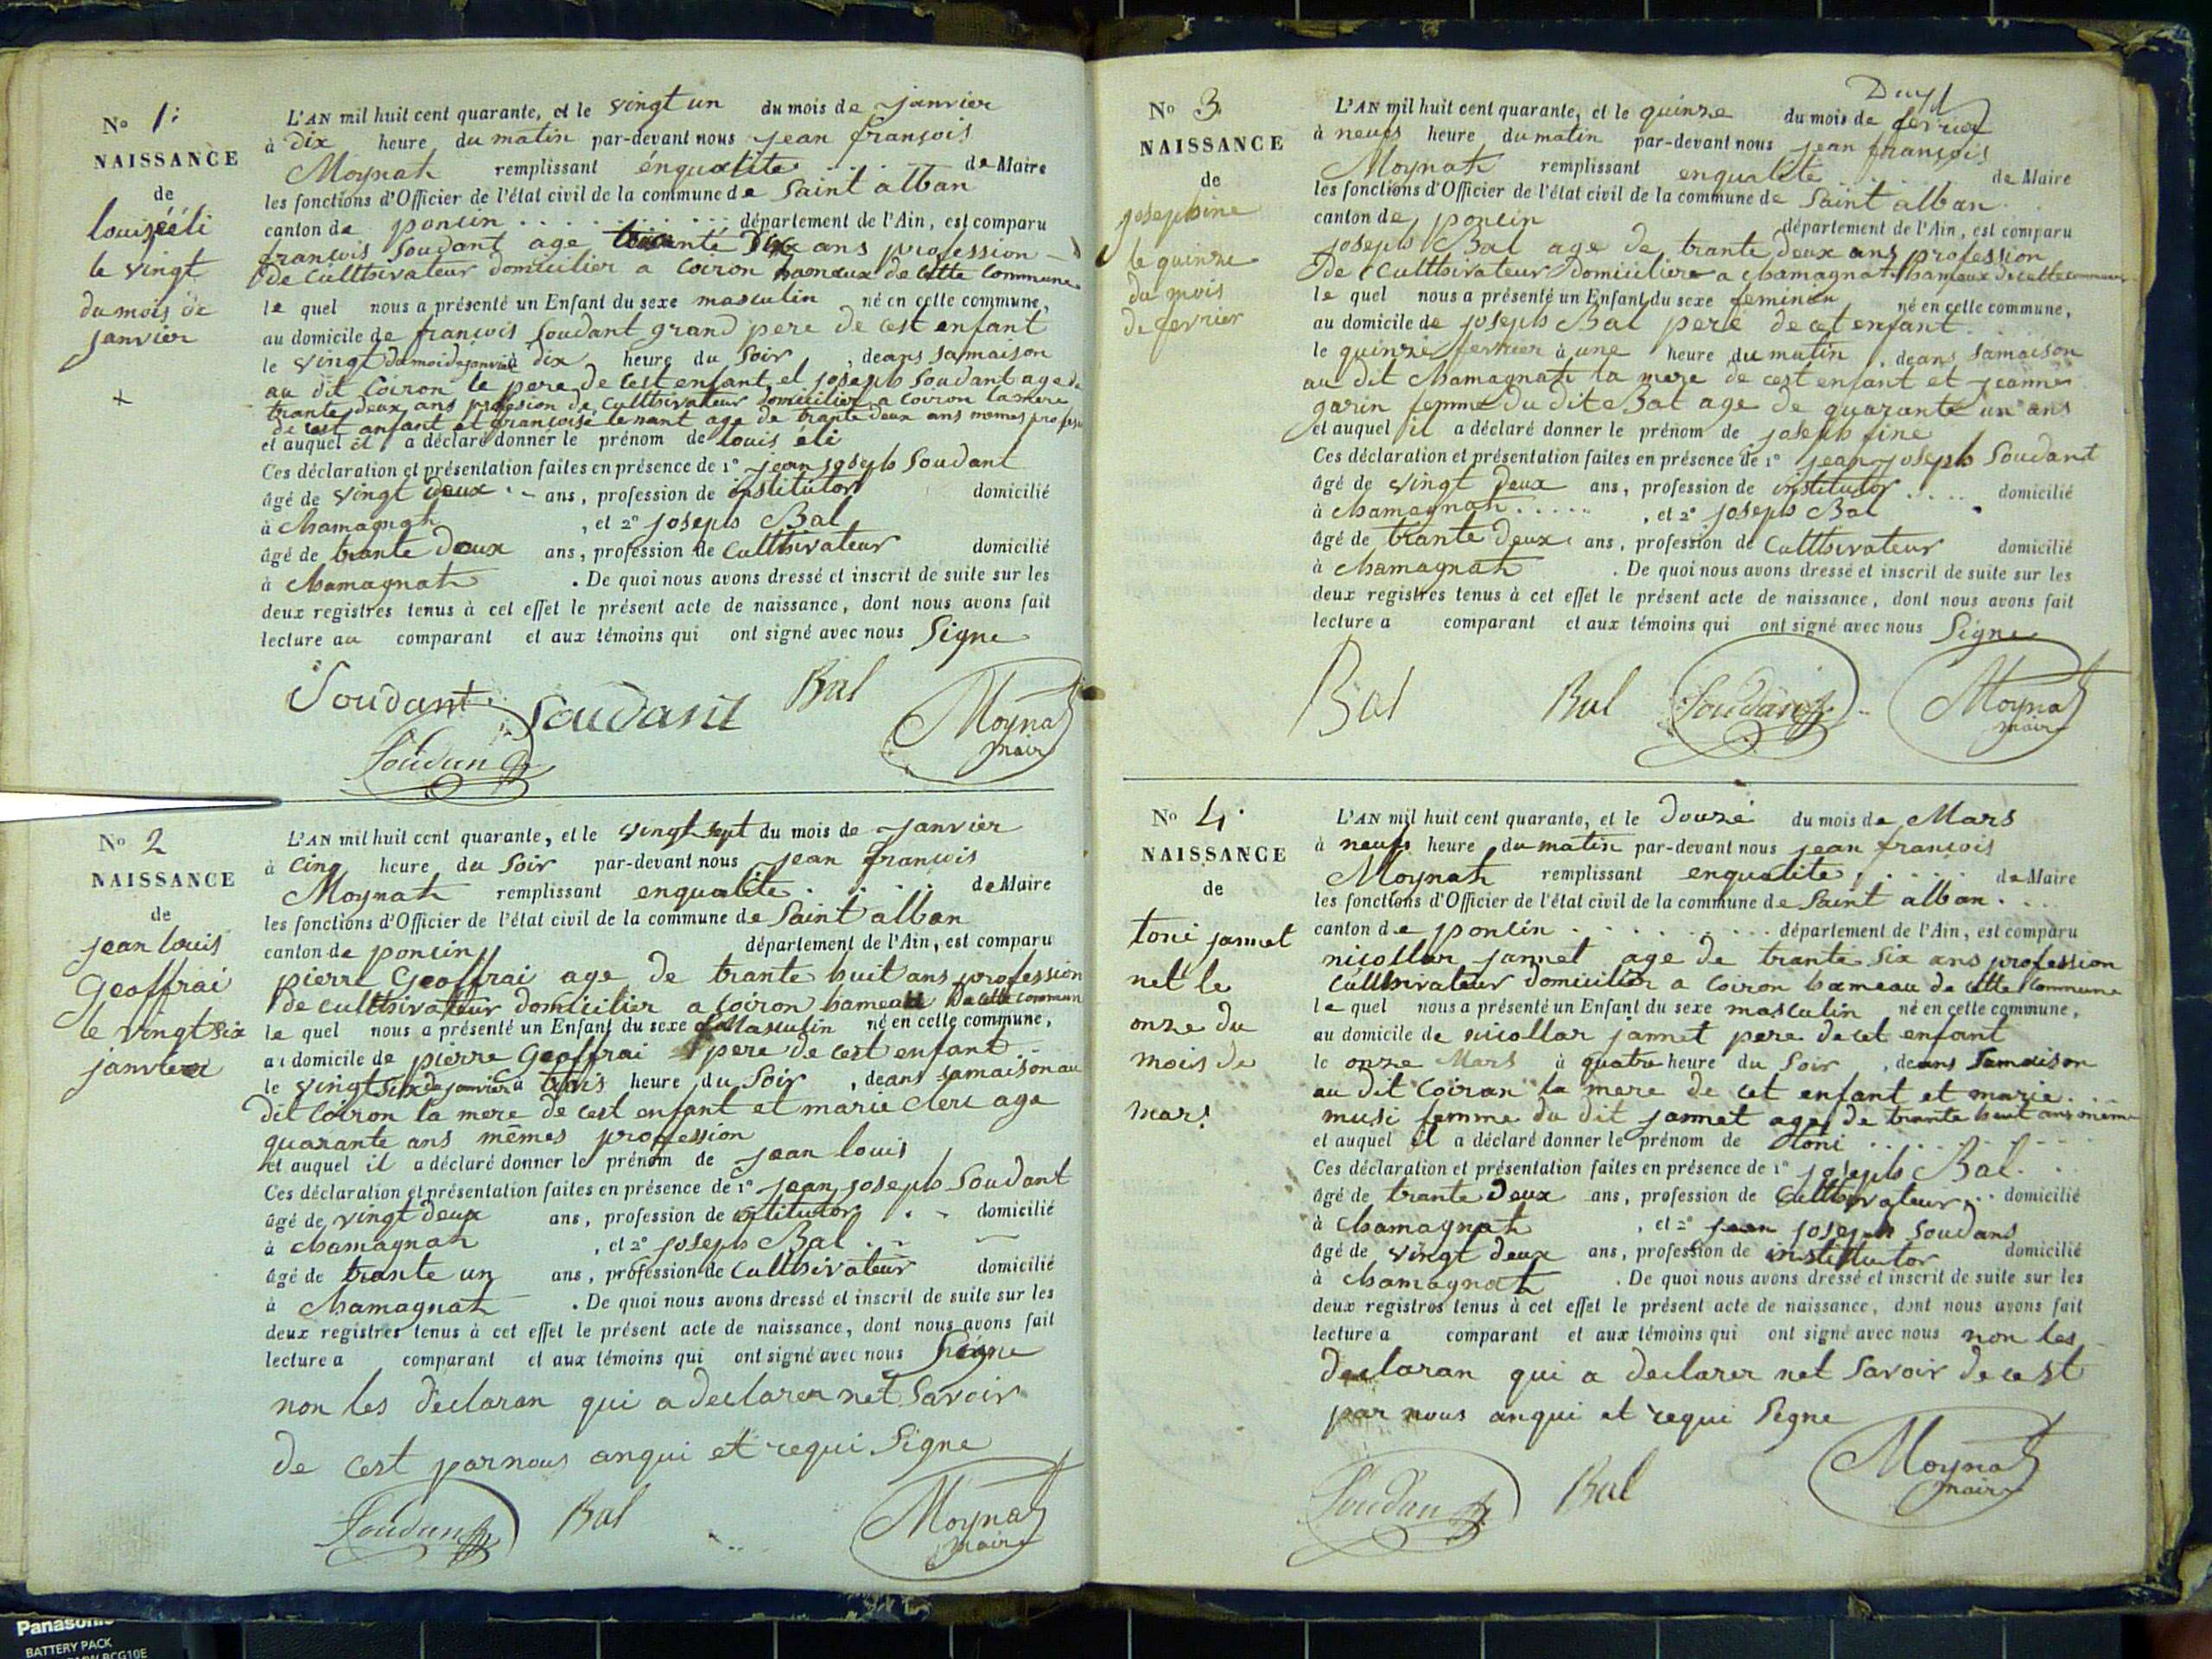 N° 1.
NAISSANCE
de
louis éli
le vingt
du mois de
janvier
L'AN mil huit cent quarante, et le vingt un du mois de janvier
à dix heure du matin par-devant nous jean françois
Moynat remplissant énqualite de Maire
les fonctions d'Officier de l'état civil de la commune de Saint alban
canton de poncin département de l'Ain, est comparu
françois Soudant age ans profession
de culthivateur domicilier a Coiron hameaux de cette Commune
le quel nous a présenté un Enfant du sexe masculin né en cette commune,
au domicile de françois Soudant grand pere de cest enfant
le vingt du moi de janvier à dix heure du Soir , deans Samaison
au dit Coiron le pere de cest enfant et joseph Soudant age de
trante deux ans profesion de Culthivateur domicilier a Coiron la mere
de cest anfant et françoise tenant age de trante deux ans momes profesi
et auquel il a déclaré donner le prénom de louis éli
Ces déclaration et présentation faites en présence de 1° jean joseph Soudant
âgé de vingt deux ans, profession de institutor domicilié
à Chamagnat , et 2° joseph Bal
âgé de trante deux ans, profession de Culthivateur domicilié
à Chamagnat . De quoi nous avons dressé et inscrit de suite sur les
deux registres tenus à cet effet le présent acte de naissance, dont nous avons fait
lecture au comparant et aux témoins qui ont signé avec nous Signe
Soudant Soudant Bal
Soudant Moynat
maire
N° 2
NAISSANCE
de
jean louis
Geoffrai
le vingt six
janvier
L'AN mil huit cent quarante, et le vingt sept du mois de janvier
à cinq heure du Soir par-devant nous jean françois
Moynat remplissant enqualite de Maire
les fonctions d'Officier de l'état civil de la commune de Saint alban
canton de poncin département de l'Ain, est comparu
pierre Geoffrai age de trante huit ans profession
de culthivateur domicilier a Coiron hameau de cette commun
le quel nous a présenté un Enfant du sexe Masculin né en cette commune,
au domicile de pierre Geoffrai pere de cest enfant
le vingt six de janvier à trois heure du Soir , deans samaison au
dit Coiron la mere de cest enfant et marie clerc age
quarante ans mêmes profession
et auquel il a déclaré donner le prénom de jean louis
Ces déclaration et présentation faites en présence de 1° jean joseph Soudant
âgé de vingt deux ans, profession de institutor domicilié
à chamagnat , et 2° joseph Bal
âgé de trante un ans, profession de Culthivateur domicilié
à Chamagnat . De quoi nous avons dressé et inscrit de suite sur les
deux registres tenus à cet effet le présent acte de naissance, dont nous avons fait
lecture a comparant et aux témoins qui ont signé avec nous Signe
non les declaran qui a declarer net Savoir
de cest par nous anqui et requi Signe
Soudant Bal Moynat
maire
N° 3
NAISSANCE
de
josephine
le quinze
du mois
de fevrier
Deux
L'AN mil huit cent quarante, et le quinze du mois de fevrier
à neufs heure du matin par-devant nous jean françois
Moynat remplissant enqualite de Maire
les fonctions d'Officier de l'état civil de la commune de Saint alban
canton de poncin département de l'Ain, est comparu
joseph Bal age de trante deux ans profession
de Culthivateur domicilier a chamagnat hameaux de cette commune
le quel nous a présenté un Enfant du sexe feminin né en cette commune,
au domicile de joseph Bal pere de cet enfant
le quinze fevrier à une heure du matin , deans Samaison
au dit Chamagnat la mere de cest enfant et jeanne
garin femme du dite Bal age de quarante un ans
et auquel il a déclaré donner le prénom de joseph fine
Ces déclaration et présentation faites en présence de 1° jean joseph Soudant
âgé de vingt deux ans, profession de institutor domicilié
à Chamagnat , et 2° joseph Bal
âgé de trante deux ans, profession de Culthivateur domicilié
à Chamagnat . De quoi nous avons dressé et inscrit de suite sur les
deux registres tenus à cet effet le présent acte de naissance, dont nous avons fait
lecture a comparant et aux témoins qui ont signé avec nous Signe
Bal Bal Soudant Moynat
maire
N° 4.
NAISSANCE
de
toni jannet
net le
onze du
mois de
mars
L'AN mil huit cent quarante, et le douze du mois de Mars
à neufs heure du matin par-devant nous jean françois
Moynat remplissant enqualite de Maire
les fonctions d'Officier de l'état civil de la commune de Saint alban
canton de poncin département de l'Ain, est comparu
nicollar jannet age de trante six ans profession
Culthivateur domicilier a Coiron hameau de cette Commune
le quel nous a présenté un Enfant du sexe masculin né en cette commune,
au domicile de nicollar jannet pere de cet enfant
le onze Mars à quatre heure du Soir , deans Samaison
au dit Coiran la mere de cet enfant et marie
musi femme du dit jannet age de trante huit ans meme
et auquel il a déclaré donner le prénom de toni
Ces déclaration et présentation faites en présence de 1° joseph Bal
âgé de trante deux ans, profession de Culthivateur domicilié
à Chamagnat , et 2° jean joseph Soudans
âgé de vingt deux ans, profession de institutor domicilié
à Chamagnat . De quoi nous avons dressé et inscrit de suite sur les
deux registres tenus à cet effet le présent acte de naissance, dont nous avons fait
lecture a comparant et aux témoins qui ont signé avec nous non les
declaran qui a declarer net Savoir de cest
par nous anqui et requi Signe
Soudant Bal Moynat
maire
Panasonic
BATTERY PACK
BCG10E